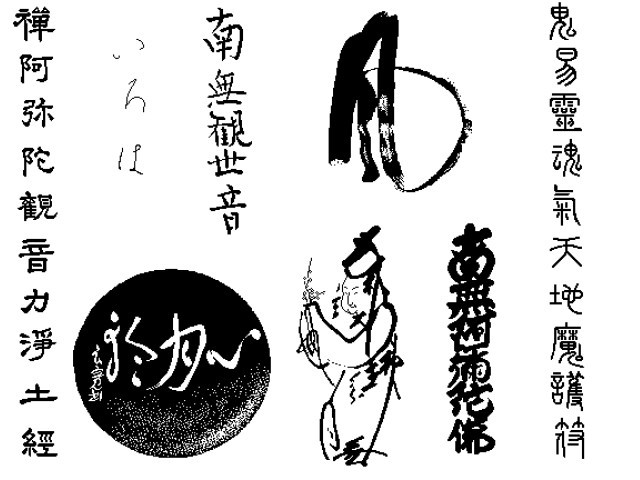 鬼易靈魂氣天地魔護符
南無阿彌陀佛
南無観世音
いろは
心月輪
禪阿弥陀觀音力淨土經